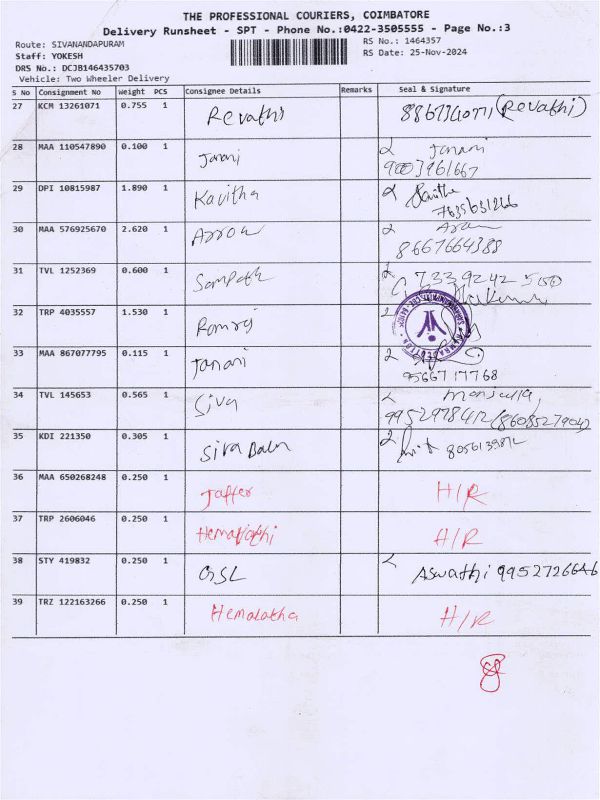 THE PROFESSIONAL COURIERS, COIMBATORE
Delivery Runsheet - SPT - Phone No.:0422-3505555 - Page No.:3
Route: SIVANANDAPURAM RS No.: 1464357
Staff: YOKESH RS Date: 25-Nov-2024
DRS No.: DCJB146435703
Vehicle: Two Wheeler Delivery
S No Consignment No Weight PCS Consignee Details Remarks Seal & Signature
27 KCM 13261071 0.755 1 Revathi (Revathi)
28 MAA 110547890 0.100 1 Janani Janani
9003961667
29 DPI 10815987 1.890 1 Kavitha
7635631266
30 MAA 576925670 2.620 1 Arrow
8667664388
31 TVL 1252369 0.600 1 Sampath 7339242500
32 TRP 4035557 1.530 1 Ramraj
33 MAA 867077795 0.115 1 Janani
9566717768
34 TVL 145653 0.565 1 Siva
9952978412 (8608527904)
35 KDI 221350 0.305 1 Siva Baln
36 MAA 650268248 0.250 1 Jaffer H/R
37 TRP 2606046 0.250 1 H/R
38 STY 419832 0.250 1 GSL Aswathi 9952726646
39 TRZ 122163266 0.250 1 Hemalatha H/R